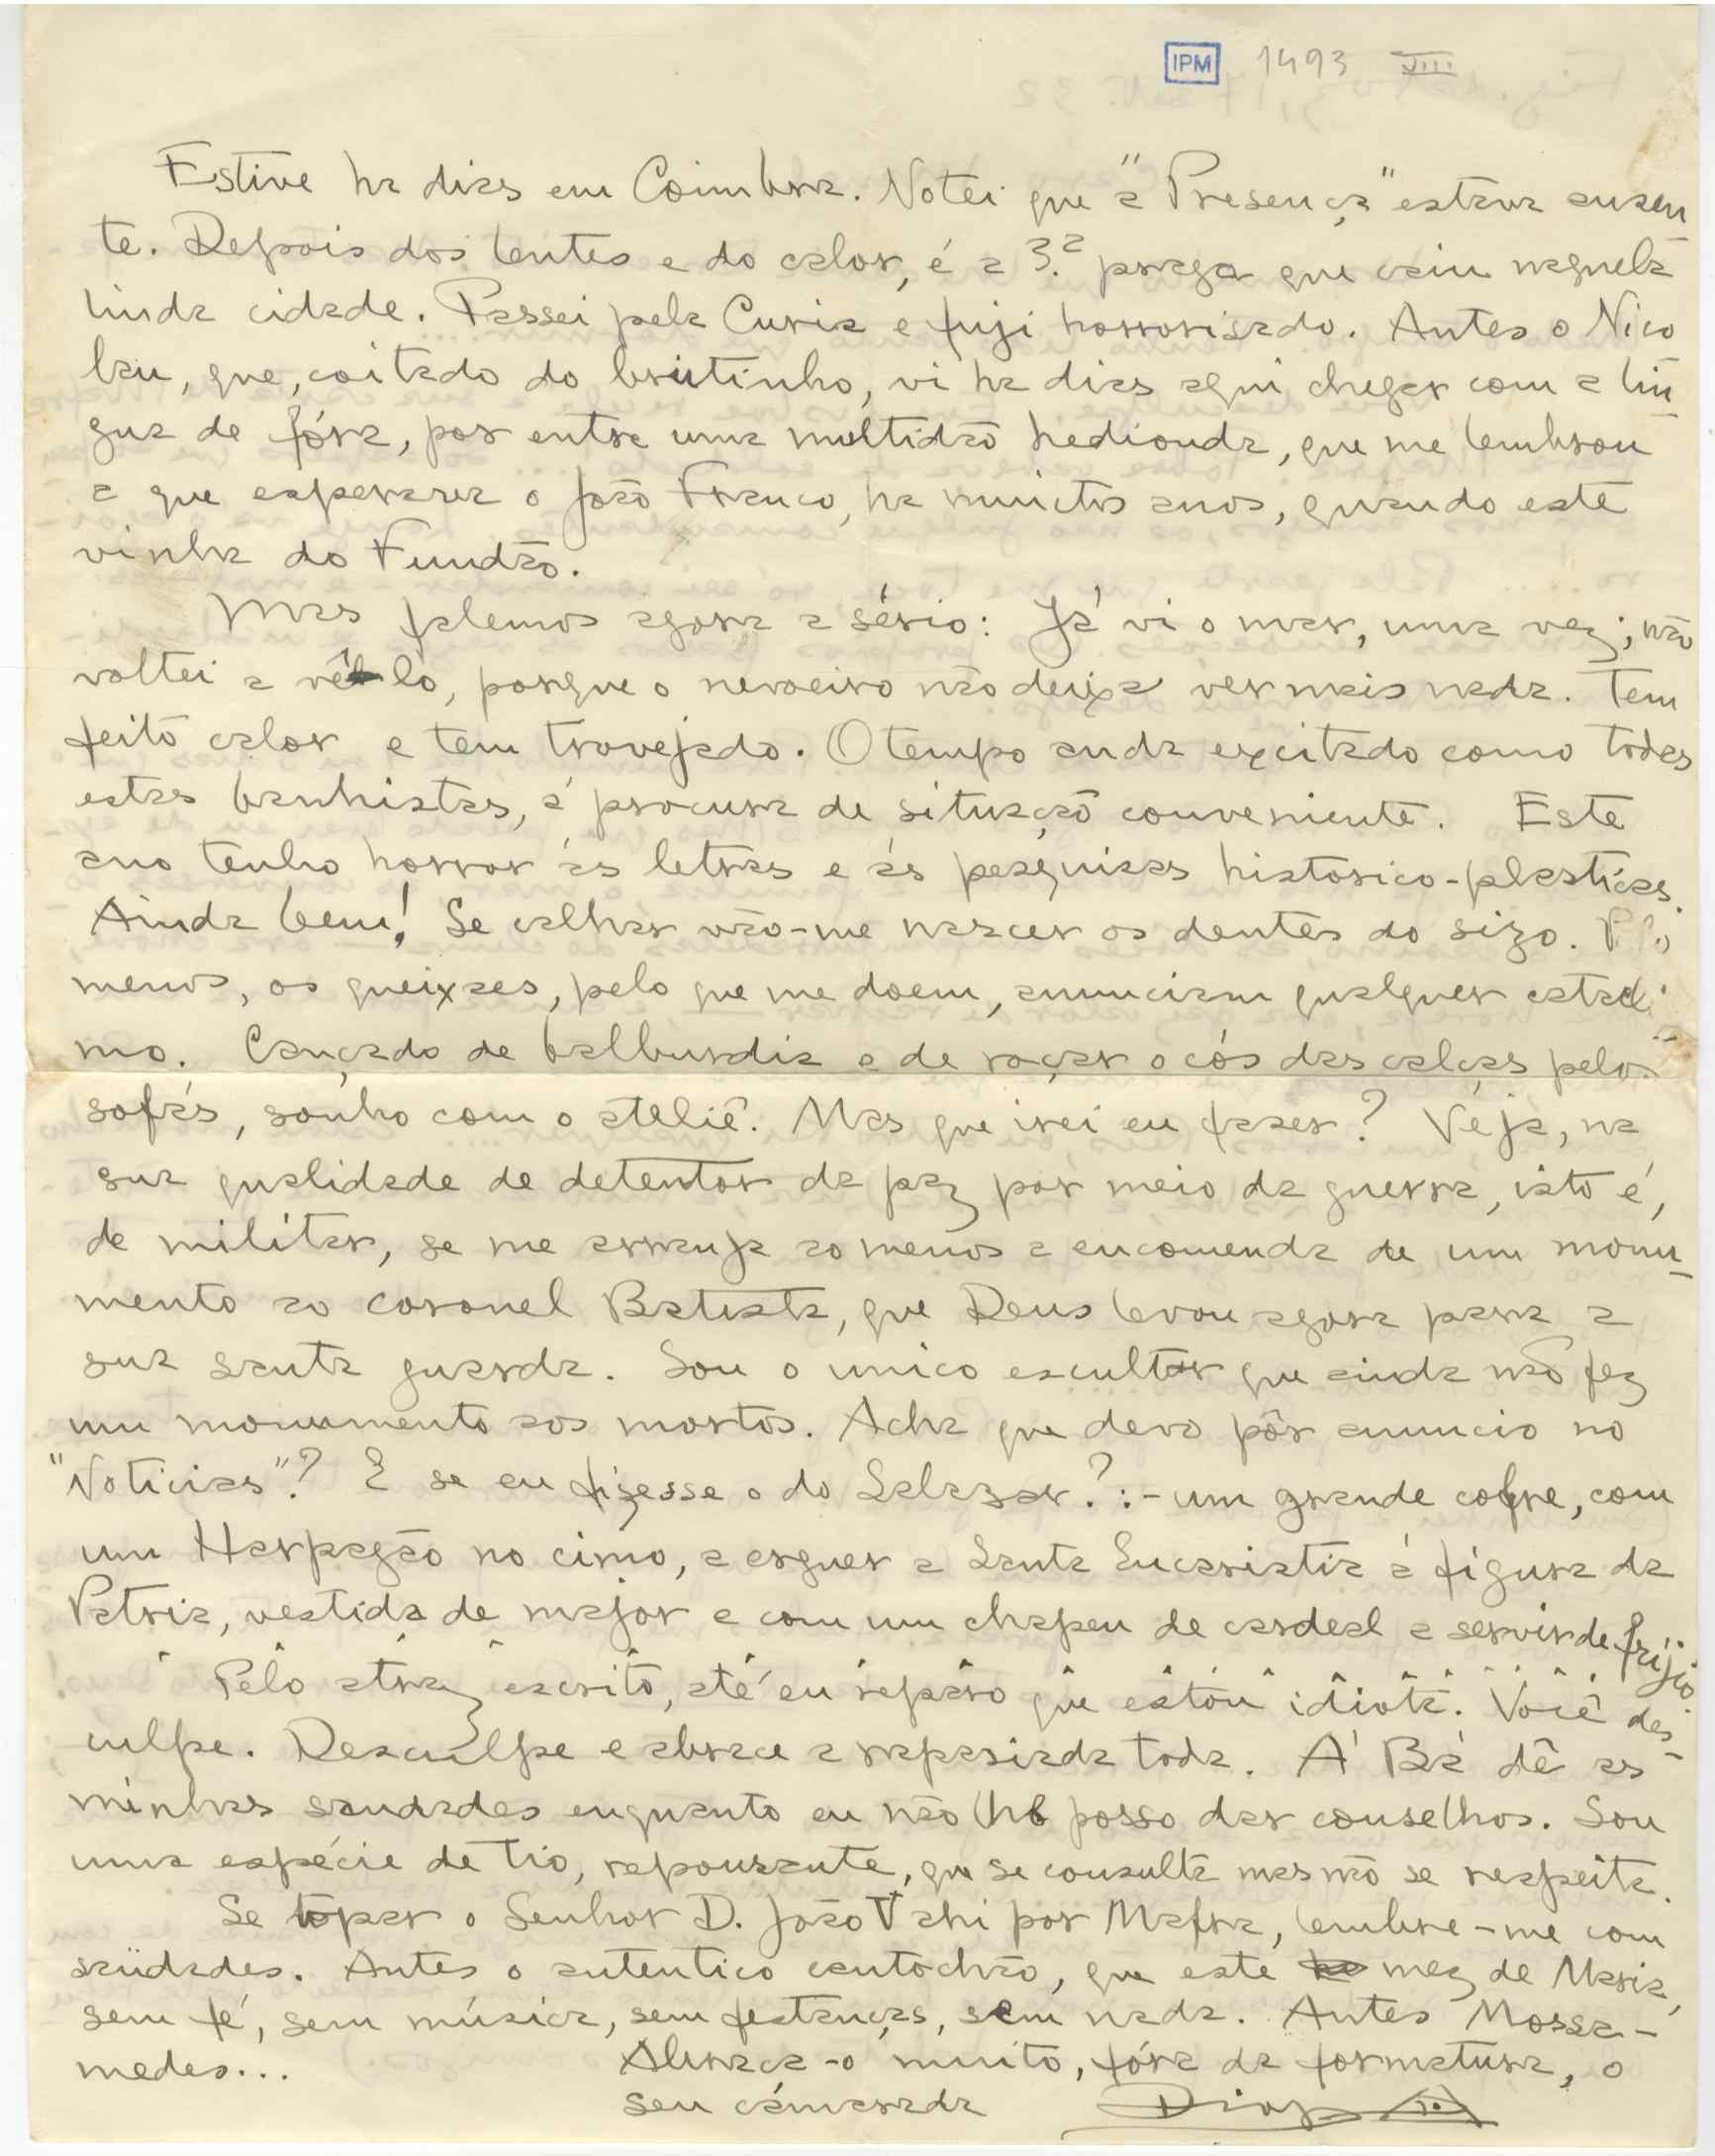 IPM 1493 VIII
Estive ha dias em Coimbra. Notei que a "Presença" estava ausen
te. Depois dos lentes e do calor, é a 3.ª praga que caiu naquela
linda cidade. Passei pela Curia e fuji horrorisado. Antes o Nico
lau, que, coitado do brutinho, vi ha dias aqui chegar com a lin-
gua de fóra, por entre uma multidão hedionda, que me lembrou
a que esperava o João Franco, ha muitos anos, quando este
vinha do Fundão.
Mas falemos agora a sério: Já vi o mar, uma vez; não
voltei a vê-lo, porque o nevoeiro não deixa ver mais nada. Tem
feito calor e tem trovejado. O tempo anda excitado como todas
estas banhistas, á procura de situação conveniente. Este
ano tenho horror ás letras e ás pesquisas historico-plasticas.
Ainda bem! Se calhar vão-me nascer os dentes do sizo. Plo
menos, os queixaes, pelo que me doem, anunciam qualquer
mo. Cançado de balburdia e de roçar o cós das calças pelos
sofás, sonho com o ateliê. Mas que irei eu fazer? Veja, na
sua qualidade de detentor da paz por meio da guerra, isto é,
de militar, se me arranja ao menos a encomenda de um monu-
mento ao coronel Batista, que Deus levou agora para a
sua santa guarda. Sou o unico escultor que ainda não fez
um monumento aos mortos. Acha que devo pôr anuncio no
"Noticias"? E se eu fizesse o do Salazar?:- um grande cofre, com
um Harpagão no cimo, a erguer a Santa Eucaristia á figura da
Patria, vestida de major e com um chapeu de cardeal a servir de frijio
Pelo atraz escrito, até eu reparo que estou idiota. Você des-
culpe. Desculpe e abrace a rapasiada toda. Á Bá dê as
minhas saudades enquanto eu não lhe posso dar conselhos. Sou
uma espécie de tio, repousante, que se consulta mas não se respeita.
Se topar o Senhor D. João V ahi por Mafra, lembre-me com
saüdades. Antes o autentico cantochão, que este mez de Maria,
sem fé, sem música, sem festanças, sem nada. Antes Mossa-
medes...
Abraça-o muito, fóra da formatura, o
seu cámarada Diogo